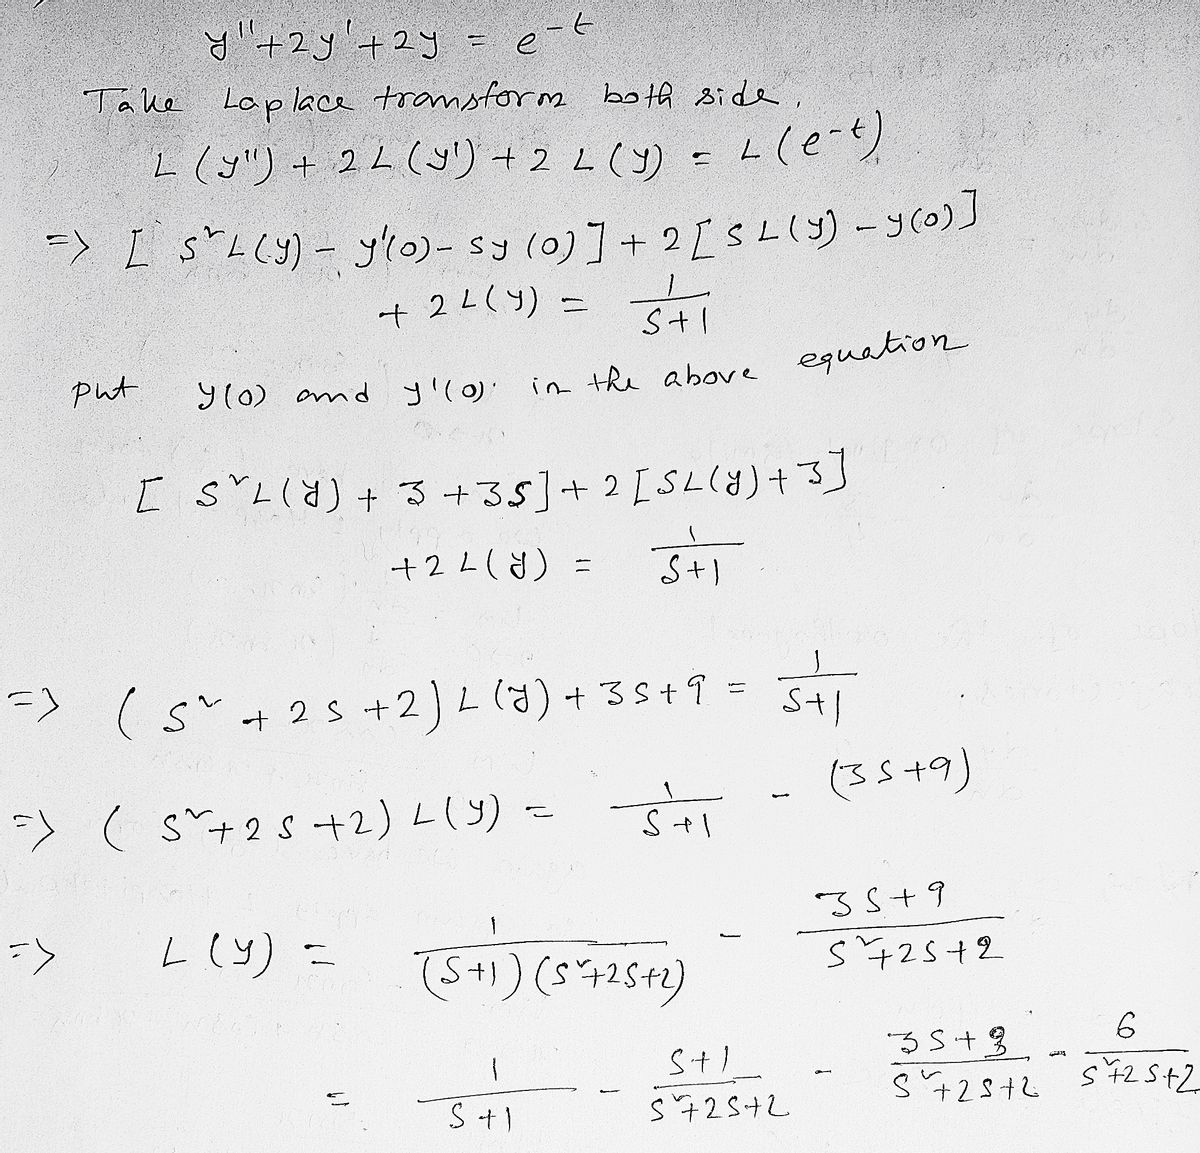 y''+2y'+2y = e^-t
Take Laplace transform both side,
L (y'') + 2L (y') + 2 L (y) = L (e^-t)
=> [ s²L(y) - y'(0) - sy (0) ] + 2 [ s L(y) - y(0) ]
+ 2L(y) = 1/(s+1)
put y(0) and y'(0) in the above equation
[ s²L(y) + 3 + 3s] + 2 [sL(y) + 3]
+2L(y) = 1/(s+1)
=> ( s² + 2s +2) L (y) + 3s+9 = 1/(s+1)
=> ( s²+2s +2) L(y) = 1/(s+1) - (3s+9)
=> L (y) = 1/((s+1)(s²+2s+2)) - (3s+9)/(s²+2s+2)
= 1/(s+1) - (s+1)/(s²+2s+2) - (3s+3)/(s²+2s+2) - 6/(s²+2s+2)